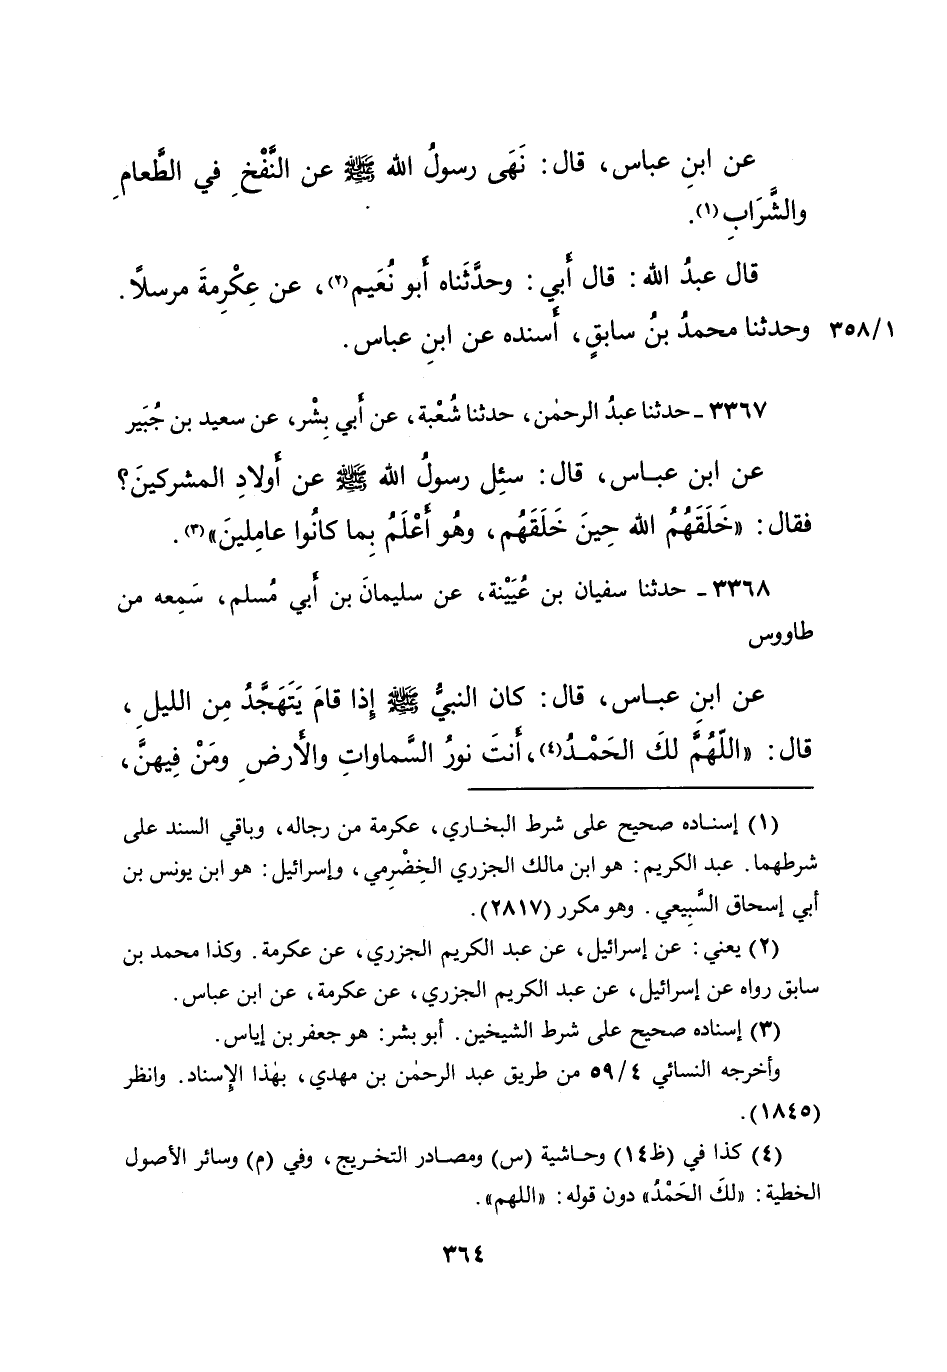 عن ابنِ عباس، قال: نَهَى رسولُ الله ﷺ عن النَّفْخِ في الطَّعامِ
والشَّرَابِ(١).
قال عبدُ الله: قال أَبي: وحدَّثَناه أَبو نُعَيم(٢)، عن عِكْرِمةَ مرسلاً.
٣٥٨/١ وحدثنا محمدُ بنُ سابقٍ، أَسنده عن ابنِ عباس.
٣٣٦٧ـ حدثنا عبدُ الرحمٰن، حدثنا شُعْبة، عن أَبي بِشْر، عن سعيد بن جُبَير
عن ابن عباس، قال: سئِل رسولُ الله ﷺ عن أَولادِ المشركينَ؟
فقال: «خَلَقَهُمُ الله حِينَ خَلَقَهُم، وهُو أَعْلَمُ بِما كانُوا عامِلينَ»(٣).
٣٣٦٨ـ حدثنا سفيان بن عُيَيْنة، عن سليمانَ بن أَبي مُسلم، سَمِعه من
طاووس
عن ابنِ عباس، قال: كان النبيُّ ﷺ إِذا قامَ يَتَهَجَّدُ مِن الليلِ،
قال: «اللّهُمَّ لكَ الحَمْدُ(٤)، أَنتَ نورُ السَّماواتِ والأَرضِ ومَنْ فِيهنَّ،
(١) إسناده صحيح على شرط البخاري، عكرمة من رجاله، وباقي السند على
شرطهما. عبد الكريم: هو ابن مالك الجزري الخِضْرِمي، وإسرائيل: هو ابن يونس بن
أبي إسحاق السَّبِيعي. وهو مكرر (٢٨١٧).
(٢) يعني: عن إسرائيل، عن عبد الكريم الجزري، عن عكرمة. وكذا محمد بن
سابق رواه عن إسرائيل، عن عبد الكريم الجزري، عن عكرمة، عن ابن عباس.
(٣) إسناده صحيح على شرط الشيخين. أبو بشر: هو جعفر بن إياس.
وأخرجه النسائي ٥٩/٤ من طريق عبد الرحمٰن بن مهدي، بهٰذا الإِسناد. وانظر
(١٨٤٥).
(٤) كذا في (ظ١٤) وحاشية (س) ومصادر التخريج، وفي (م) وسائر الأصول
الخطية: «لكَ الحَمْدُ» دون قوله: «اللهم».
٣٦٤